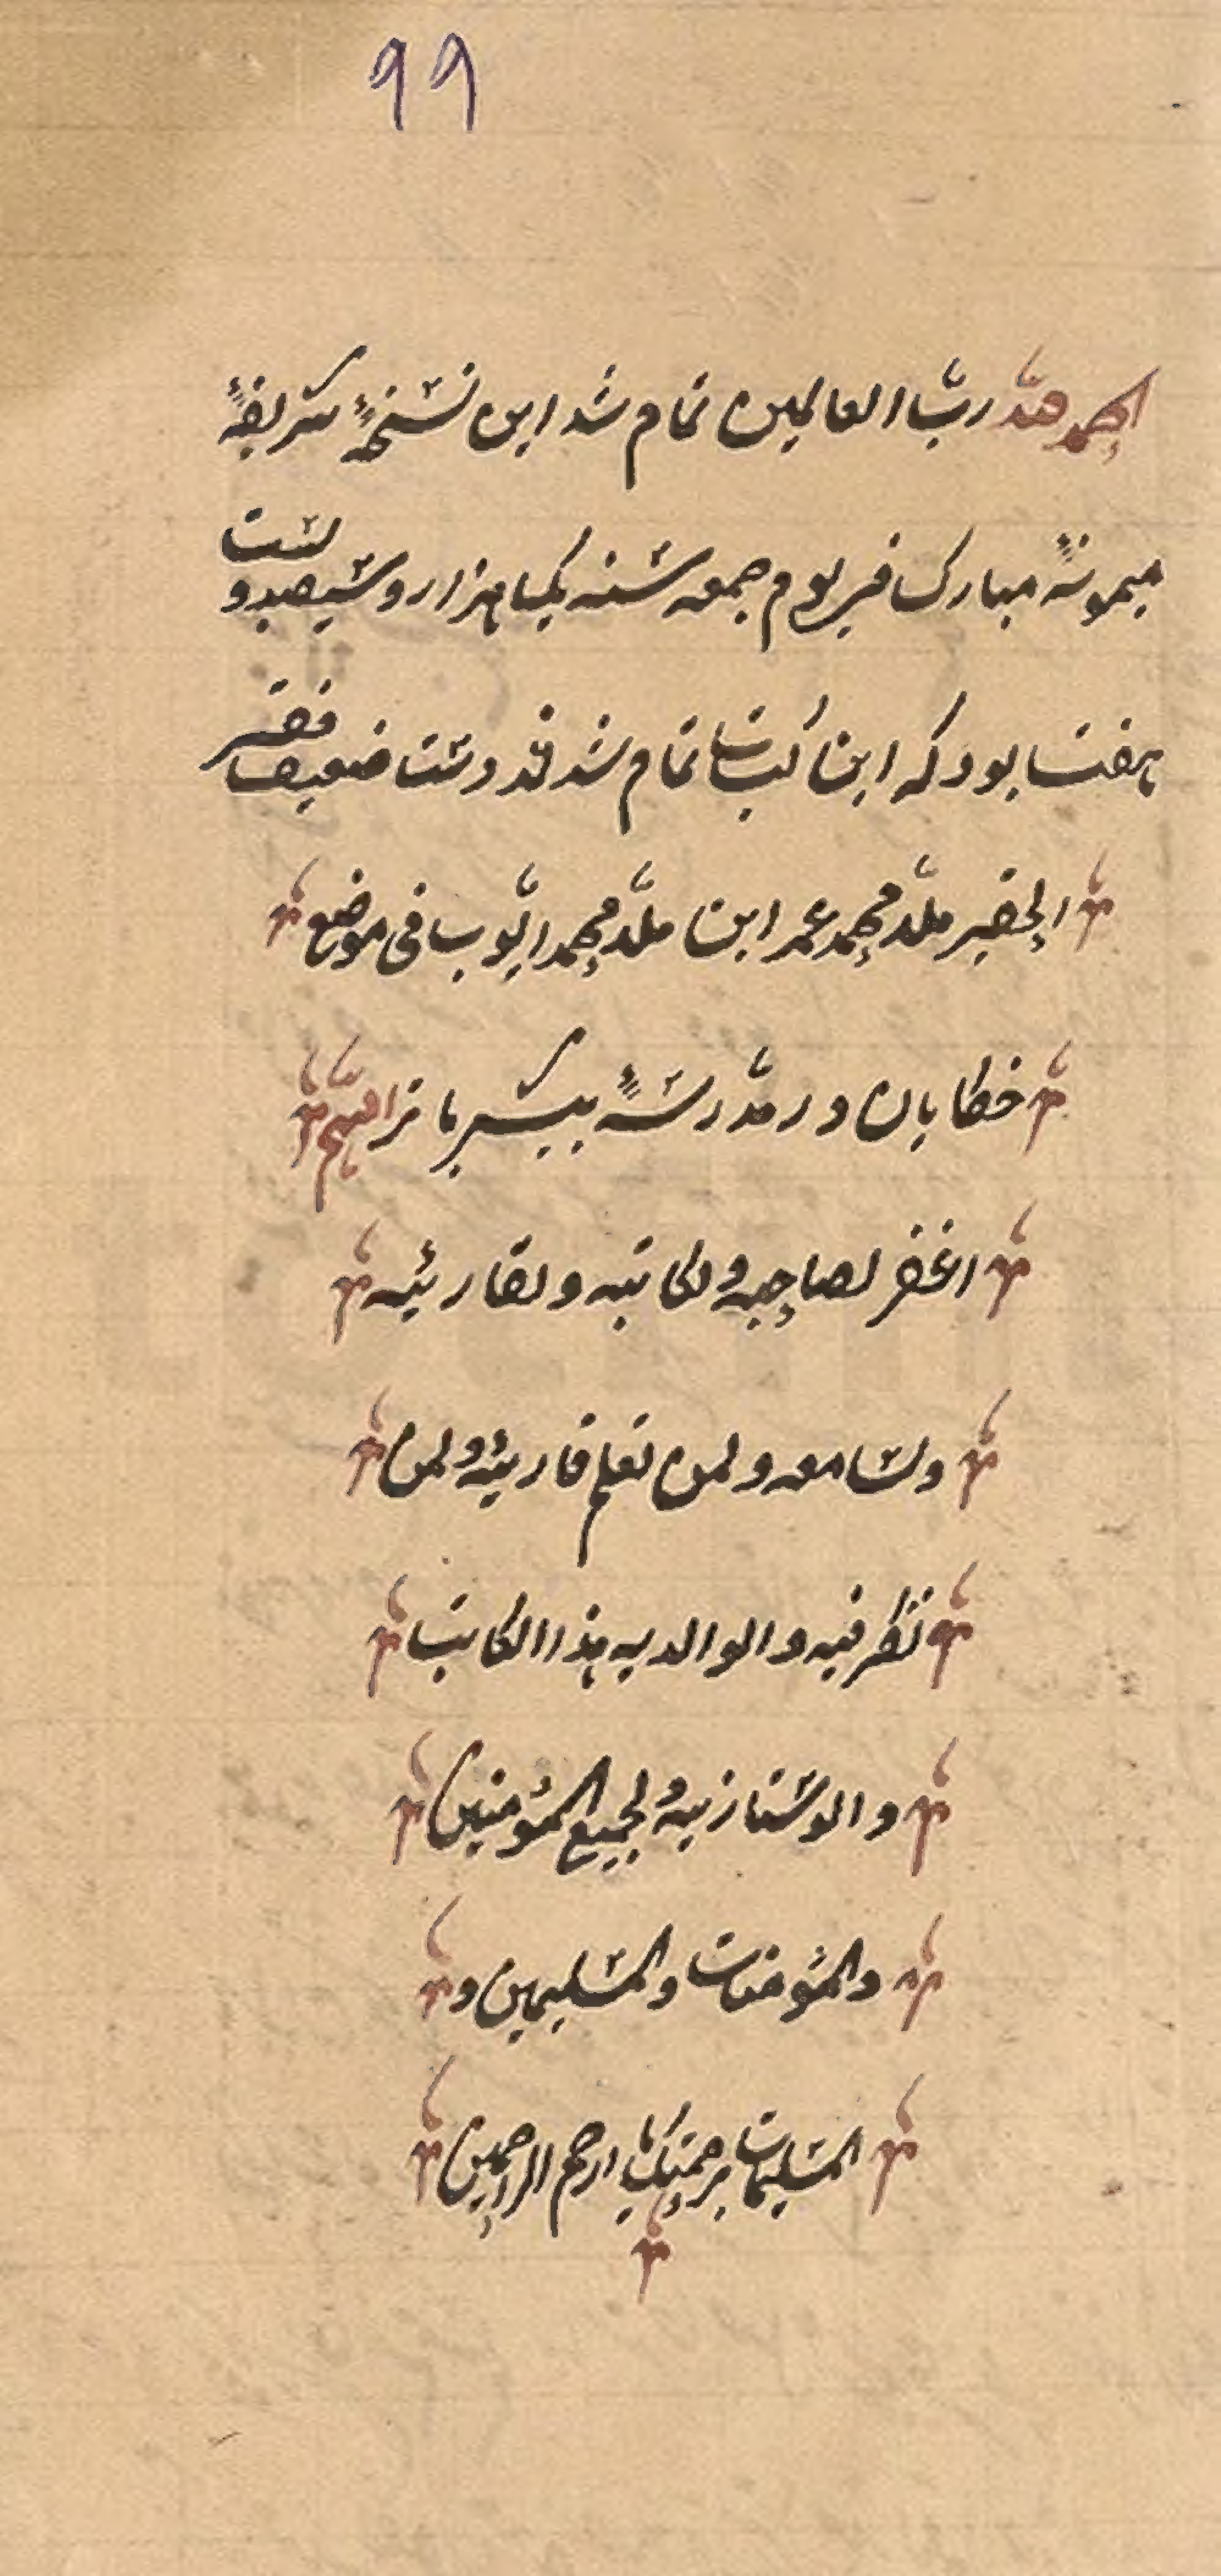 ٩٩
الحمد لله رب العالمين تمام شد اين نسخهٔ شريفهٔ
ميمونهٔ مبارك في يوم جمعه سنه يكهزار و سيصدو لست
هفت بود كه اين كتاب تمام شد قد دست ضعيف فقير
الحقير ملّا محمد عمر ابن ملّا محمد ايّوب في موضع
خطابان در مدّرسهٔ اللهم
اغفر لصاحبه ولكاتبه ولقارئيه
ولسامعه ولمن تعلم قاريئه ولمن
نظر فيه والوالديه هذا الكاتب
والوستازيه ولجميع المؤمنين
والمؤمنات والمسلمين و
المسلمات برحمتك يا ارحم الراحمين